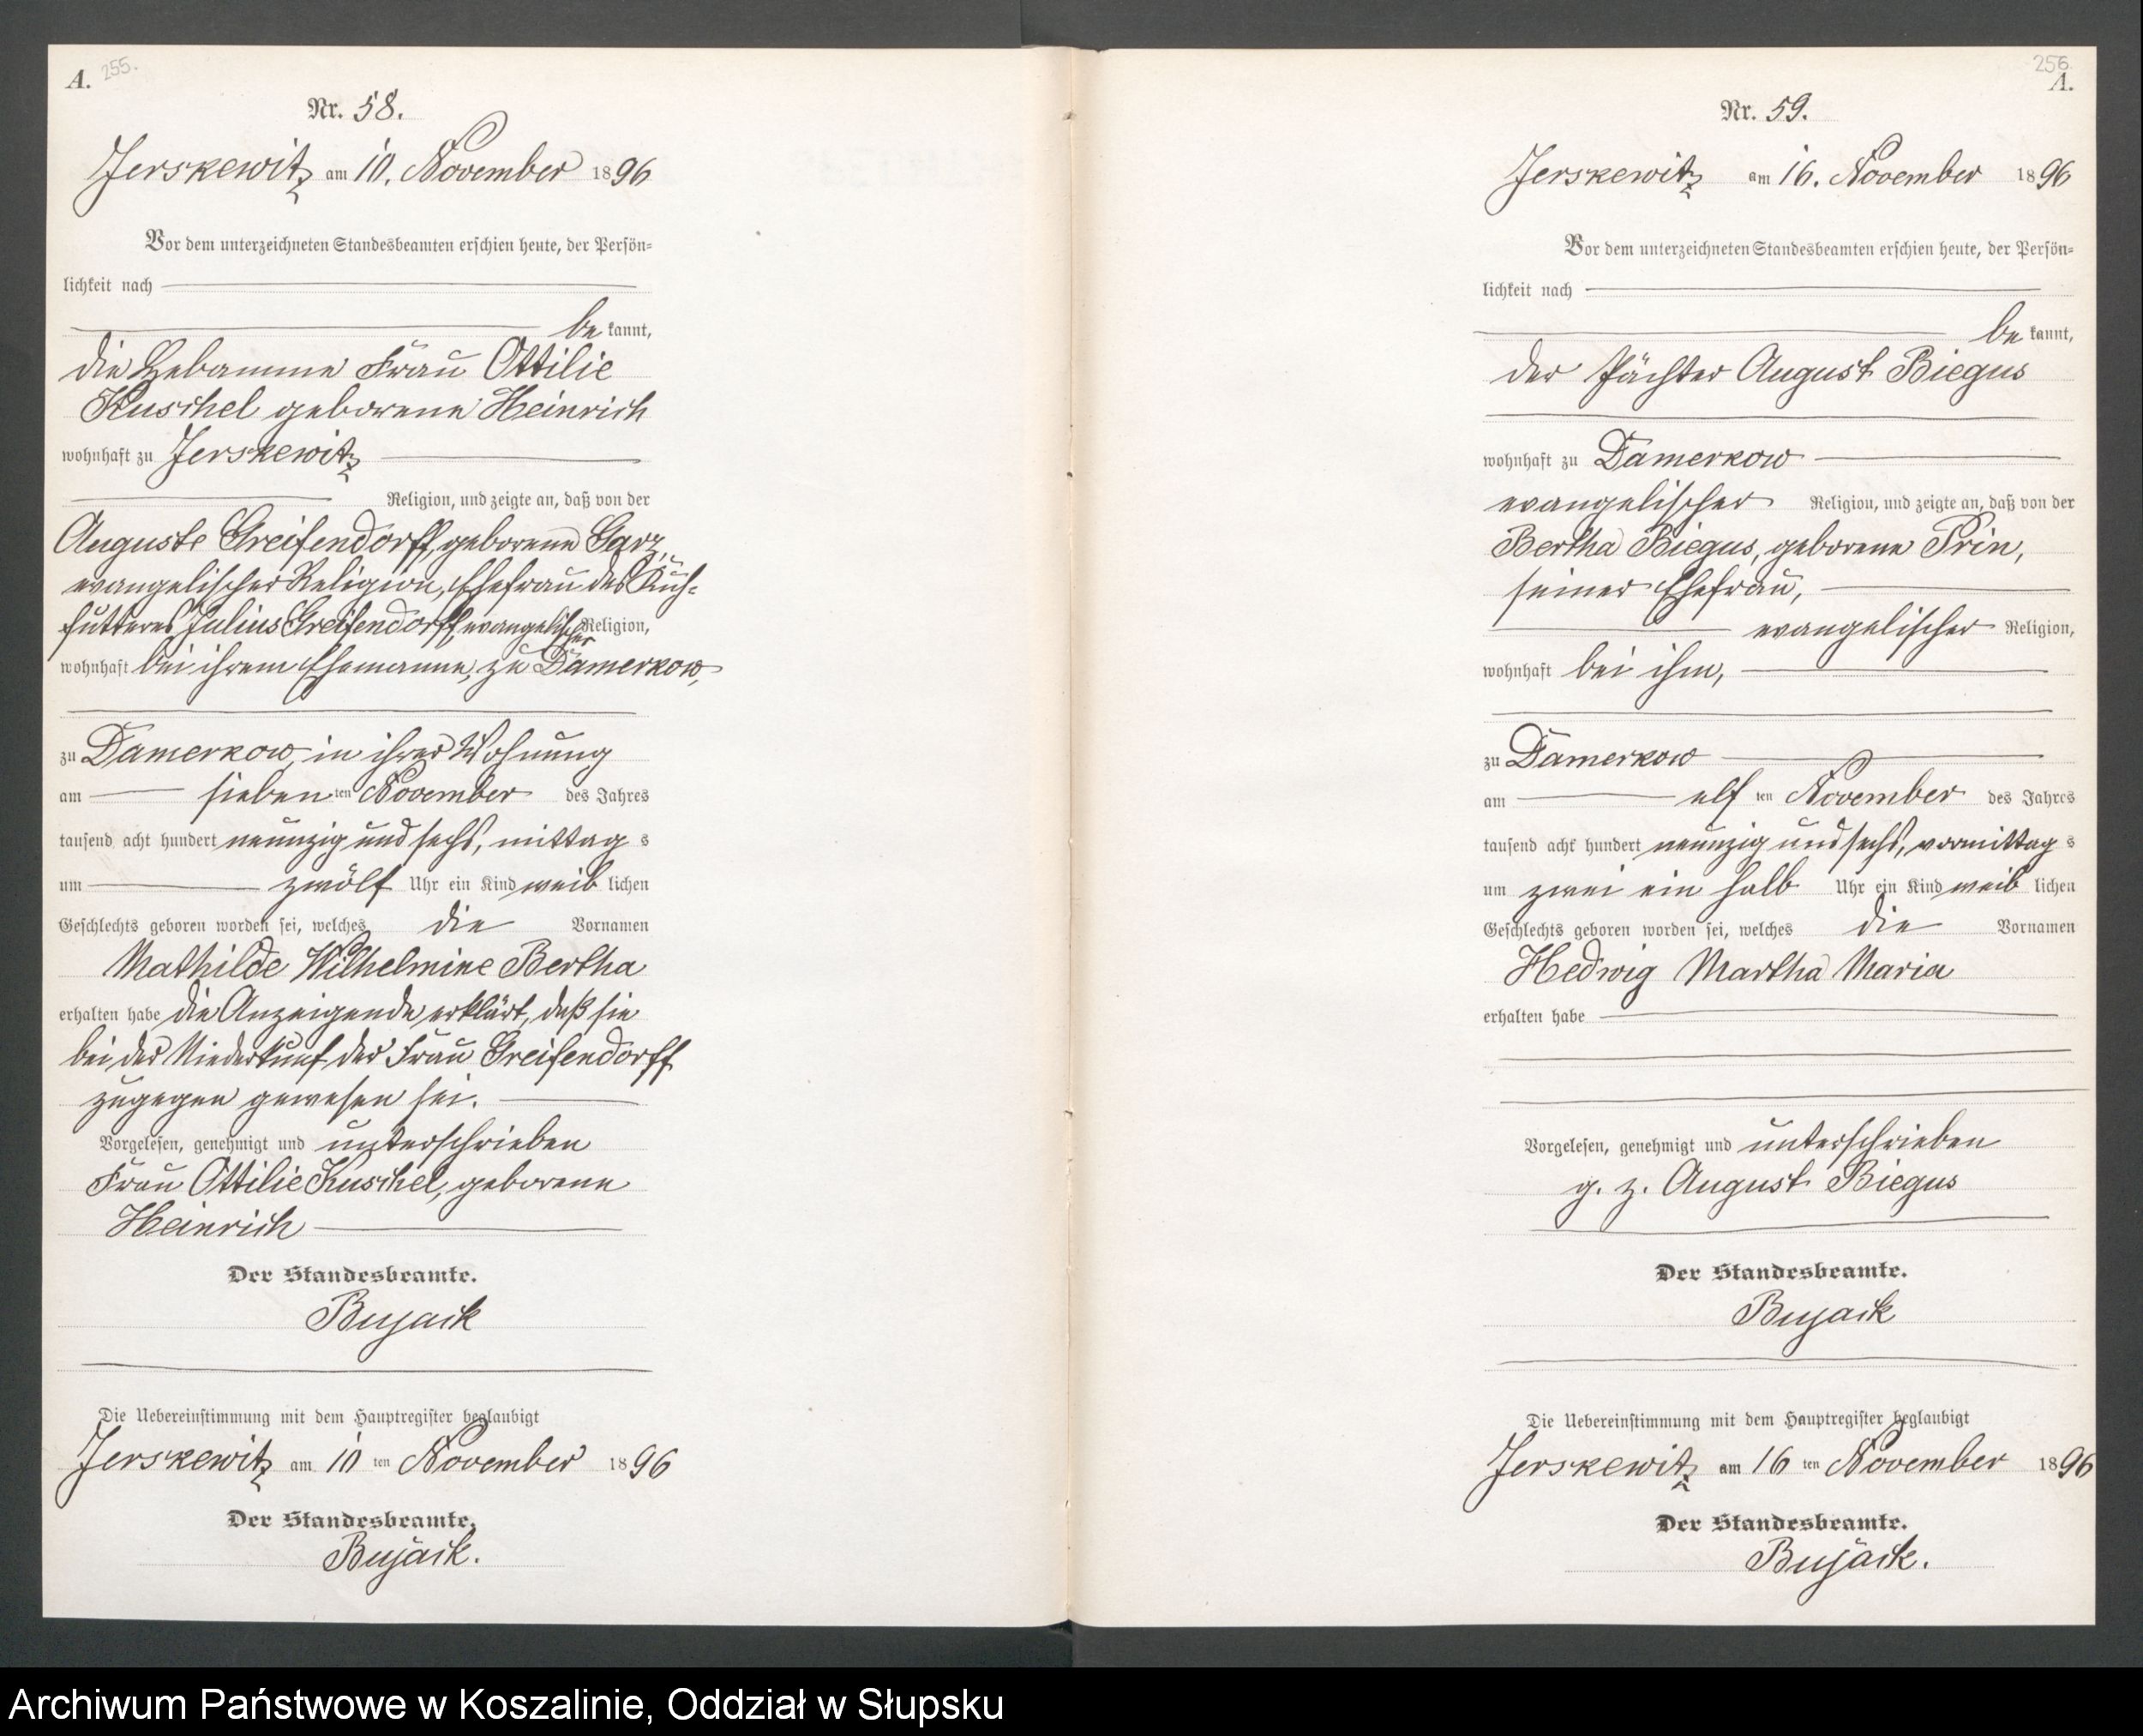 A. 255.
Nr. 58.
Jerskewitz am 10. November 1896
Vor dem unterzeichneten Standesbeamten erschien heute, der Persön-
lichkeit nach
be kannt,
die Hebamme Frau Ottilie
Kuschel geborene Heinrich
wohnhaft zu Jerskewitz
Religion, und zeigte an, daß von der
Auguste Greifendorff, geborene Garz,
evangelischer Religion, Ehefrau des Kuh-
futterers Julius Greifendorff, evangelischer Religion,
wohnhaft bei ihrem Ehemanne, zu Damerkow,
zu Damerkow, in ihrer Wohnung
am sieben ten November des Jahres
tausend acht hundert neunzig und sechs, mittag s
um zwölf Uhr ein Kind weib lichen
Geschlechts geboren worden sei, welches die Vornamen
Mathilde Wilhelmine Bertha
erhalten habe die Anzeigende erklärt, daß sie
bei der Niederkunf der Frau Greifendorff
zugegen gewesen sei.
Vorgelesen, genehmigt und unterschrieben
Frau Ottilie Kuschel, geborene
Heinrich
Der Standesbeamte.
Bujack
Die Uebereinstimmung mit dem Hauptregister beglaubigt
Jerskewitz am 10 ten November 1896
Der Standesbeamte.
Bujack.
256
A.
Nr. 59.
Jerskewitz am 16. November 1896
Vor dem unterzeichneten Standesbeamten erschien heute, der Persön-
lichkeit nach
be kannt,
der Pächter August Biegus
wohnhaft zu Damerkow
evangelischer Religion, und zeigte an, daß von der
Bertha Biegus, geborene Prin,
seiner Ehefrau,
evangelischer Religion,
wohnhaft bei ihm,
zu Damerkow
am elf ten November des Jahres
tausend acht hundert neunzig und sechs, vormittag s
um zwei ein halb Uhr ein Kind weib lichen
Geschlechts geboren worden sei, welches die Vornamen
Hedwig Martha Maria
erhalten habe
Vorgelesen, genehmigt und unterschrieben
g. z. August Biegus
Der Standesbeamte.
Bujack
Die Uebereinstimmung mit dem Hauptregister beglaubigt
Jerskewitz am 16 ten November 1896
Der Standesbeamte.
Bujack.
Archiwum Państwowe w Koszalinie, Oddział w Słupsku